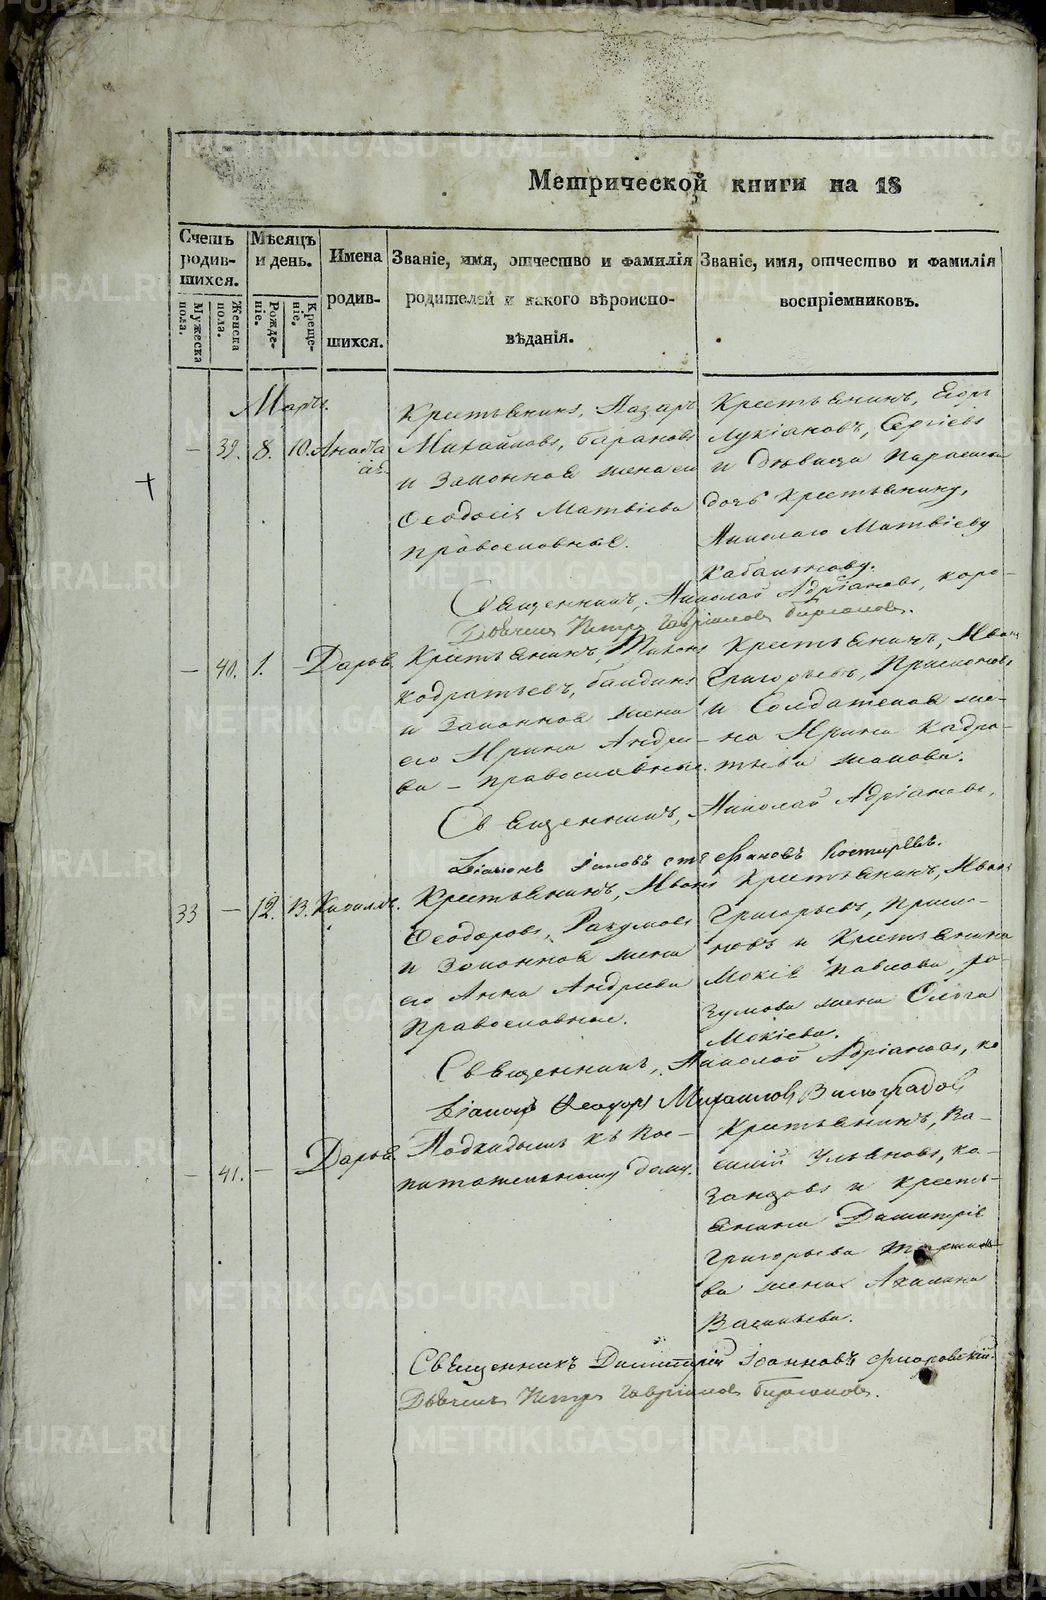 Метрической книги на 18
Счетъ родив-шихся.
Мужеска пола.
Женска пола.
Мѣсяцъ и день.
Рожде-ніе.
Креще-ніе.
Имена
родив-
шихся.
Званіе, имя, отчество и фамилія
родителей и какого вѣроиспо-
вѣданія.
Званіе, имя, отчество и фамилія
воспріемниковъ.
Мартъ.
— 39. 8. 10.
Крестьянинъ, Лазарь
Михайловъ, Барановъ
и законная жена его
Ѳеодосія Матвіева
православные.
Крестьянинъ, Егоръ
Лукіановъ, Сергіевъ
и дѣвица
дочь крестьянину,
Николаю Матвіеву
Священникъ, Николай Адріановъ,
Дьячекъ Петръ Гавріиловъ
— 40. 1. Дарья
Крестьянинъ, Тихонъ
Кодратьевъ,
и законная жена
его Ирина Андріе-
ва – православные.
Крестьянинъ, Иванъ
Григорьевъ,
и Солдатская же-
на Ирина Кадра-
тьева
Священникъ, Николай Адріановъ,
Дьяконъ Іаковъ Стефановъ
33 — 12. 13. Кириллъ.
Крестьянинъ, Иванъ
Ѳеодоровъ, Разумовъ
и законная жена
его Анна Андріева
Православные.
Крестьянинъ, Иванъ
Григорьевъ,
и Крестьянина
Мокія Павлова, Ра-
зумова жена Олога
Мокіева.
Священникъ, Николай Адріановъ,
Дьяконъ Ѳеодоръ Михаиловъ Виноградовъ
— 41. — Дарья.
Подкидышъ къ Вос-
питательному дому.
Крестьянинъ, Ва-
силій Ульяновъ, Ка-
занцовъ и кресть-
янина Димитрія
Григорьева
ва жена Акилина
Васильева.
Священникъ Димитрій Іоанновъ Флоровскій.
Дьячекъ Петръ Гавріиловъ
METRIKI.GASO-URAL.RU